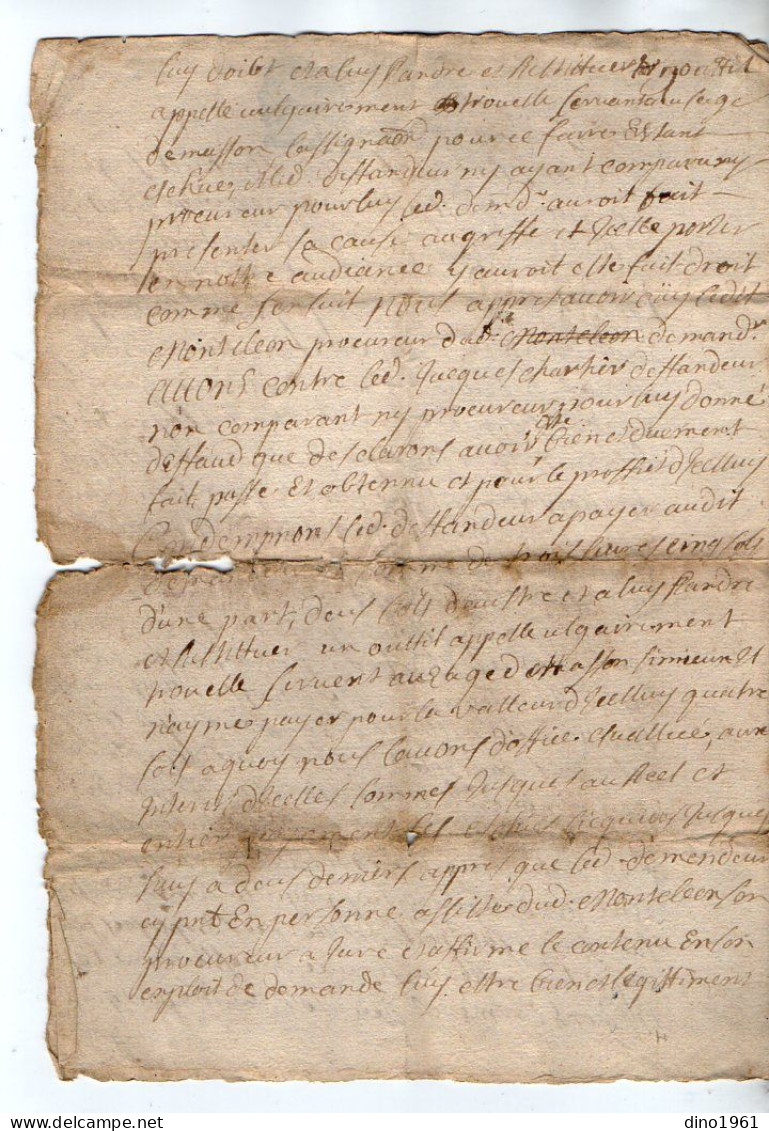 luy doibt et a luy Randre et Restituer un outtil
appellé vulgairement trouelle servant a usage
de masson l'assignaõn pour ce faire Estant
eschuez et led. deffandeur ny ayant comparu ny
procureur pour luy led. demdr. auroit fait
presenter sa cause au greffe et Icelle porter
en nottre audiance y auroit esté fait droit
comme s'ensuit Nous appres avoir ouy ledit
Monteleon procureur dud. demandr.
AVONS contre led. Jacques chartier deffandeur
non comparant ny procureur pour luy donné
deffaud que desclarons avoir esté bien et duement
fait, passé Et obtenu et pour le proffit d'Icelluy
Condempnons led. deffandeur a payer audit
somme de trois livres cinq sols
d'une part, deus sols d'aultre et a luy Randre
et Restittuer un outtil appellé vulgairement
trouelle servent au usage de Masson si mieux Il
n'ayme payer pour la valleur d'Icelluy quatre
sols a quoy nous l'avons d'office esvallué, aux
Interets d'Icelles sommes Jusques au Reel et
entier payement et Jusques
Icy a deus deniers appres que led. demendeur
cy pnt En personne assisté dud. Monteleon son
procureur a Juré et affirmé le contenu En son
exploit de demande luy estre bien et legittiment
dino1961